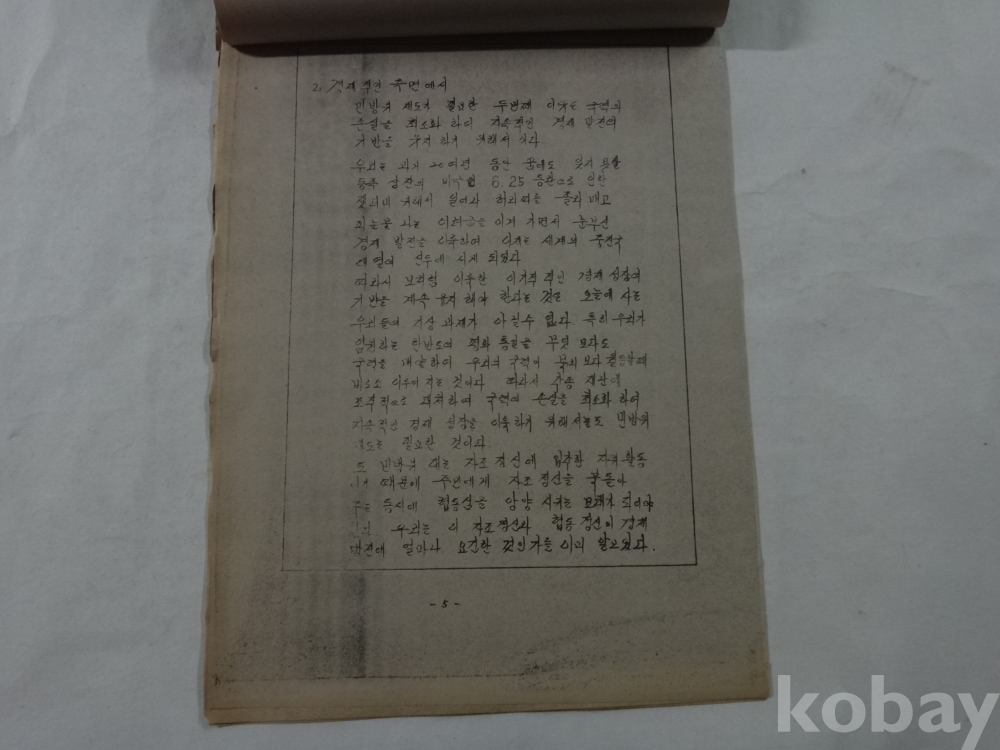 2. 경제적인 측면에서
민방위 제도가 필요한 두번째 이유는 국력의
손실을 최소화 하여 지속적인 경제 발전의
기반을 유지 하기 위해서 이다
우리는 과거 20여년 동안 꿈에도 잊지 못할
동족 상잔의 비극인 6.25 동란으로 인한
잿더미 위에서 일어나 허리띠를 졸라 매고
피눈물 나는 어려움을 이겨 가면서 눈부신
경제 발전을 이룩하여 이제는 세계의 중진국
대열에 선두에 서게 되었다
따라서 이룩한 경제 성장의
기반을 계속 유지 해야 한다는 것은 오늘에 사는
우리들의 지상 과제가 아닐수 없다 특히 우리가
염원하는 한반도의 평화 통일을 무엇 보다도
국력을 배양하여 우리의 국력이 북괴 보다
비로소 이루어 지는 것이다 따라서 각종 재난에
조직적으로 대처하여 국력의 손실을 최소화 하여
지속적인 경제 성장을 이룩하기 위해서도 민방위
제도는 필요한 것이다
또 민방위 대는 자조 정신에 입각한 자위 활동
이기 때문에 주민에게 자조 정신을 북돋아
주는 동시에 협동심을 함양 시키는 모체가 되어야
우리는 이 자조 정신과 협동 정신이 경제
발전에 얼마나 요긴한 것인가를 이미 알고 있다.
- 5 -
kobay